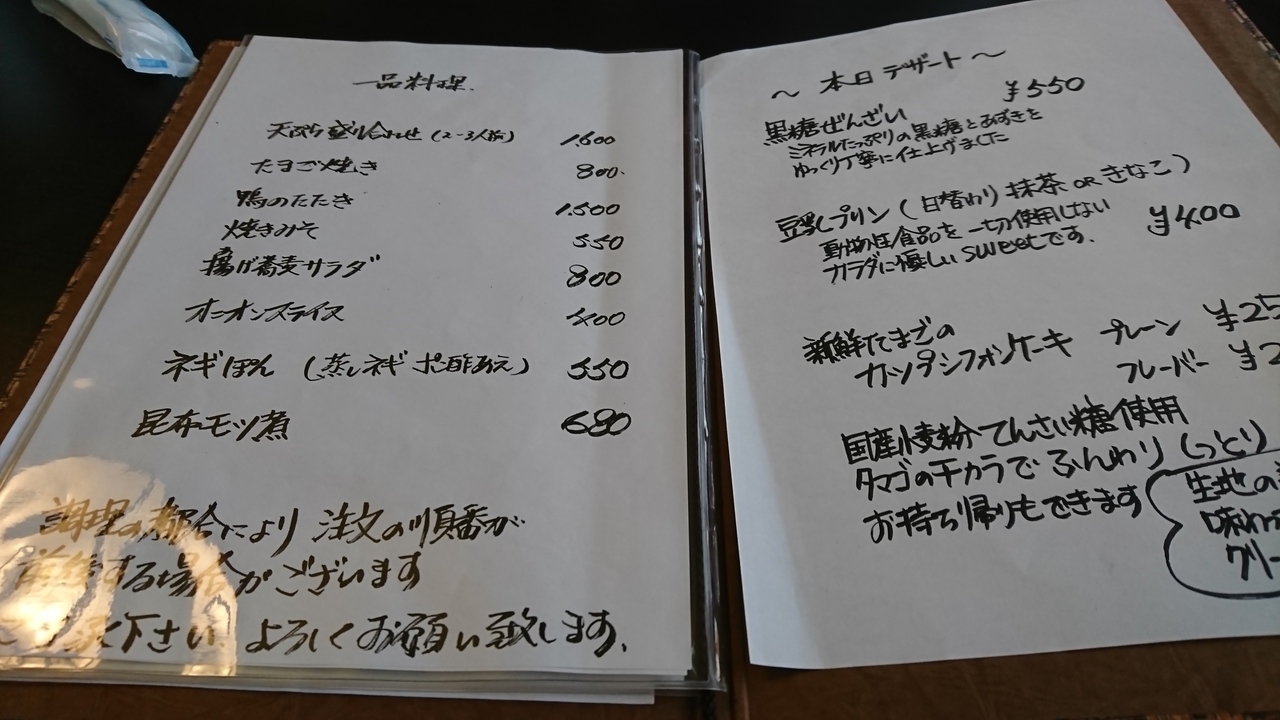 一品料理.
天ぷら盛り合わせ (2~3人前) 1,600
たまご焼き 800.
鴨のたたき 1,500
焼きみそ 550
揚げ蕎麦サラダ 800
オニオンスライス 400
ネギぽん (蒸しネギ ポン酢あえ) 550
昆布モツ煮 680
調理の都合により 注文の順番が
前後する場合がございます
下さい よろしくお願い致します.
~ 本日 デザート ~
黒糖ぜんざい ¥550
ミネラルたっぷりの黒糖とあずきを
ゆっくり丁寧に仕上げました
豆乳プリン (日替わり 抹茶 OR きなこ)
動物性食品を一切使用しない ¥400
カラダに優しい sweetです.
新鮮たまごの
カンタンシフォンケーキ プレーン ¥25
フレーバー ¥2
国産小麦粉 てんさい糖使用
タマゴのチカラで ふんわり しっとり
お持ち帰りもできます
生地の
味わ
クリー